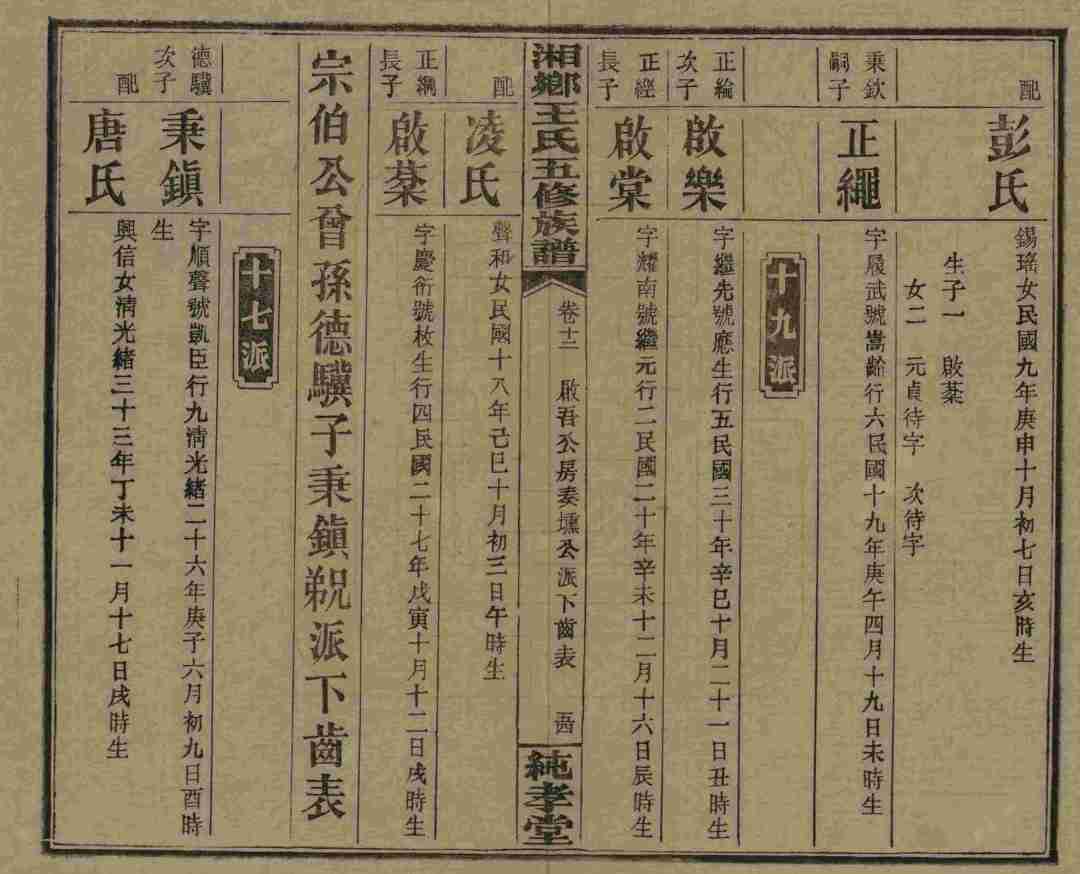 配
彭氏
錫瑤女民國九年庚申十月初七日亥時生
生子一　啟棻
女二　元貞待字　次待字
秉欽嗣子
正繩
字履武號嵩齡行六民國十九年庚午四月十九日未時生
十九派
正綸次子
啟樂
字繼先號應生行五民國三十年辛巳十月二十一日丑時生
正經長子
啟棠
字耀南號繼元行二民國二十年辛未十二月十六日辰時生
湘鄉王氏五修族譜
卷十二　啟吾公房奏壎公派下齒表
純孝堂
配
凌氏
聲和女民國十八年己巳十月初三日午時生
正綱長子
啟棻
字慶衍號枚生行四民國二十七年戊寅十月十二日戌時生
宗伯公曾孫德驥子秉鎮猊派下齒表
十七派
德驥次子
秉鎮
字順聲號凱臣行九清光緒二十六年庚子六月初九日酉時生
配
唐氏
興信女清光緒三十三年丁未十一月十七日戌時生